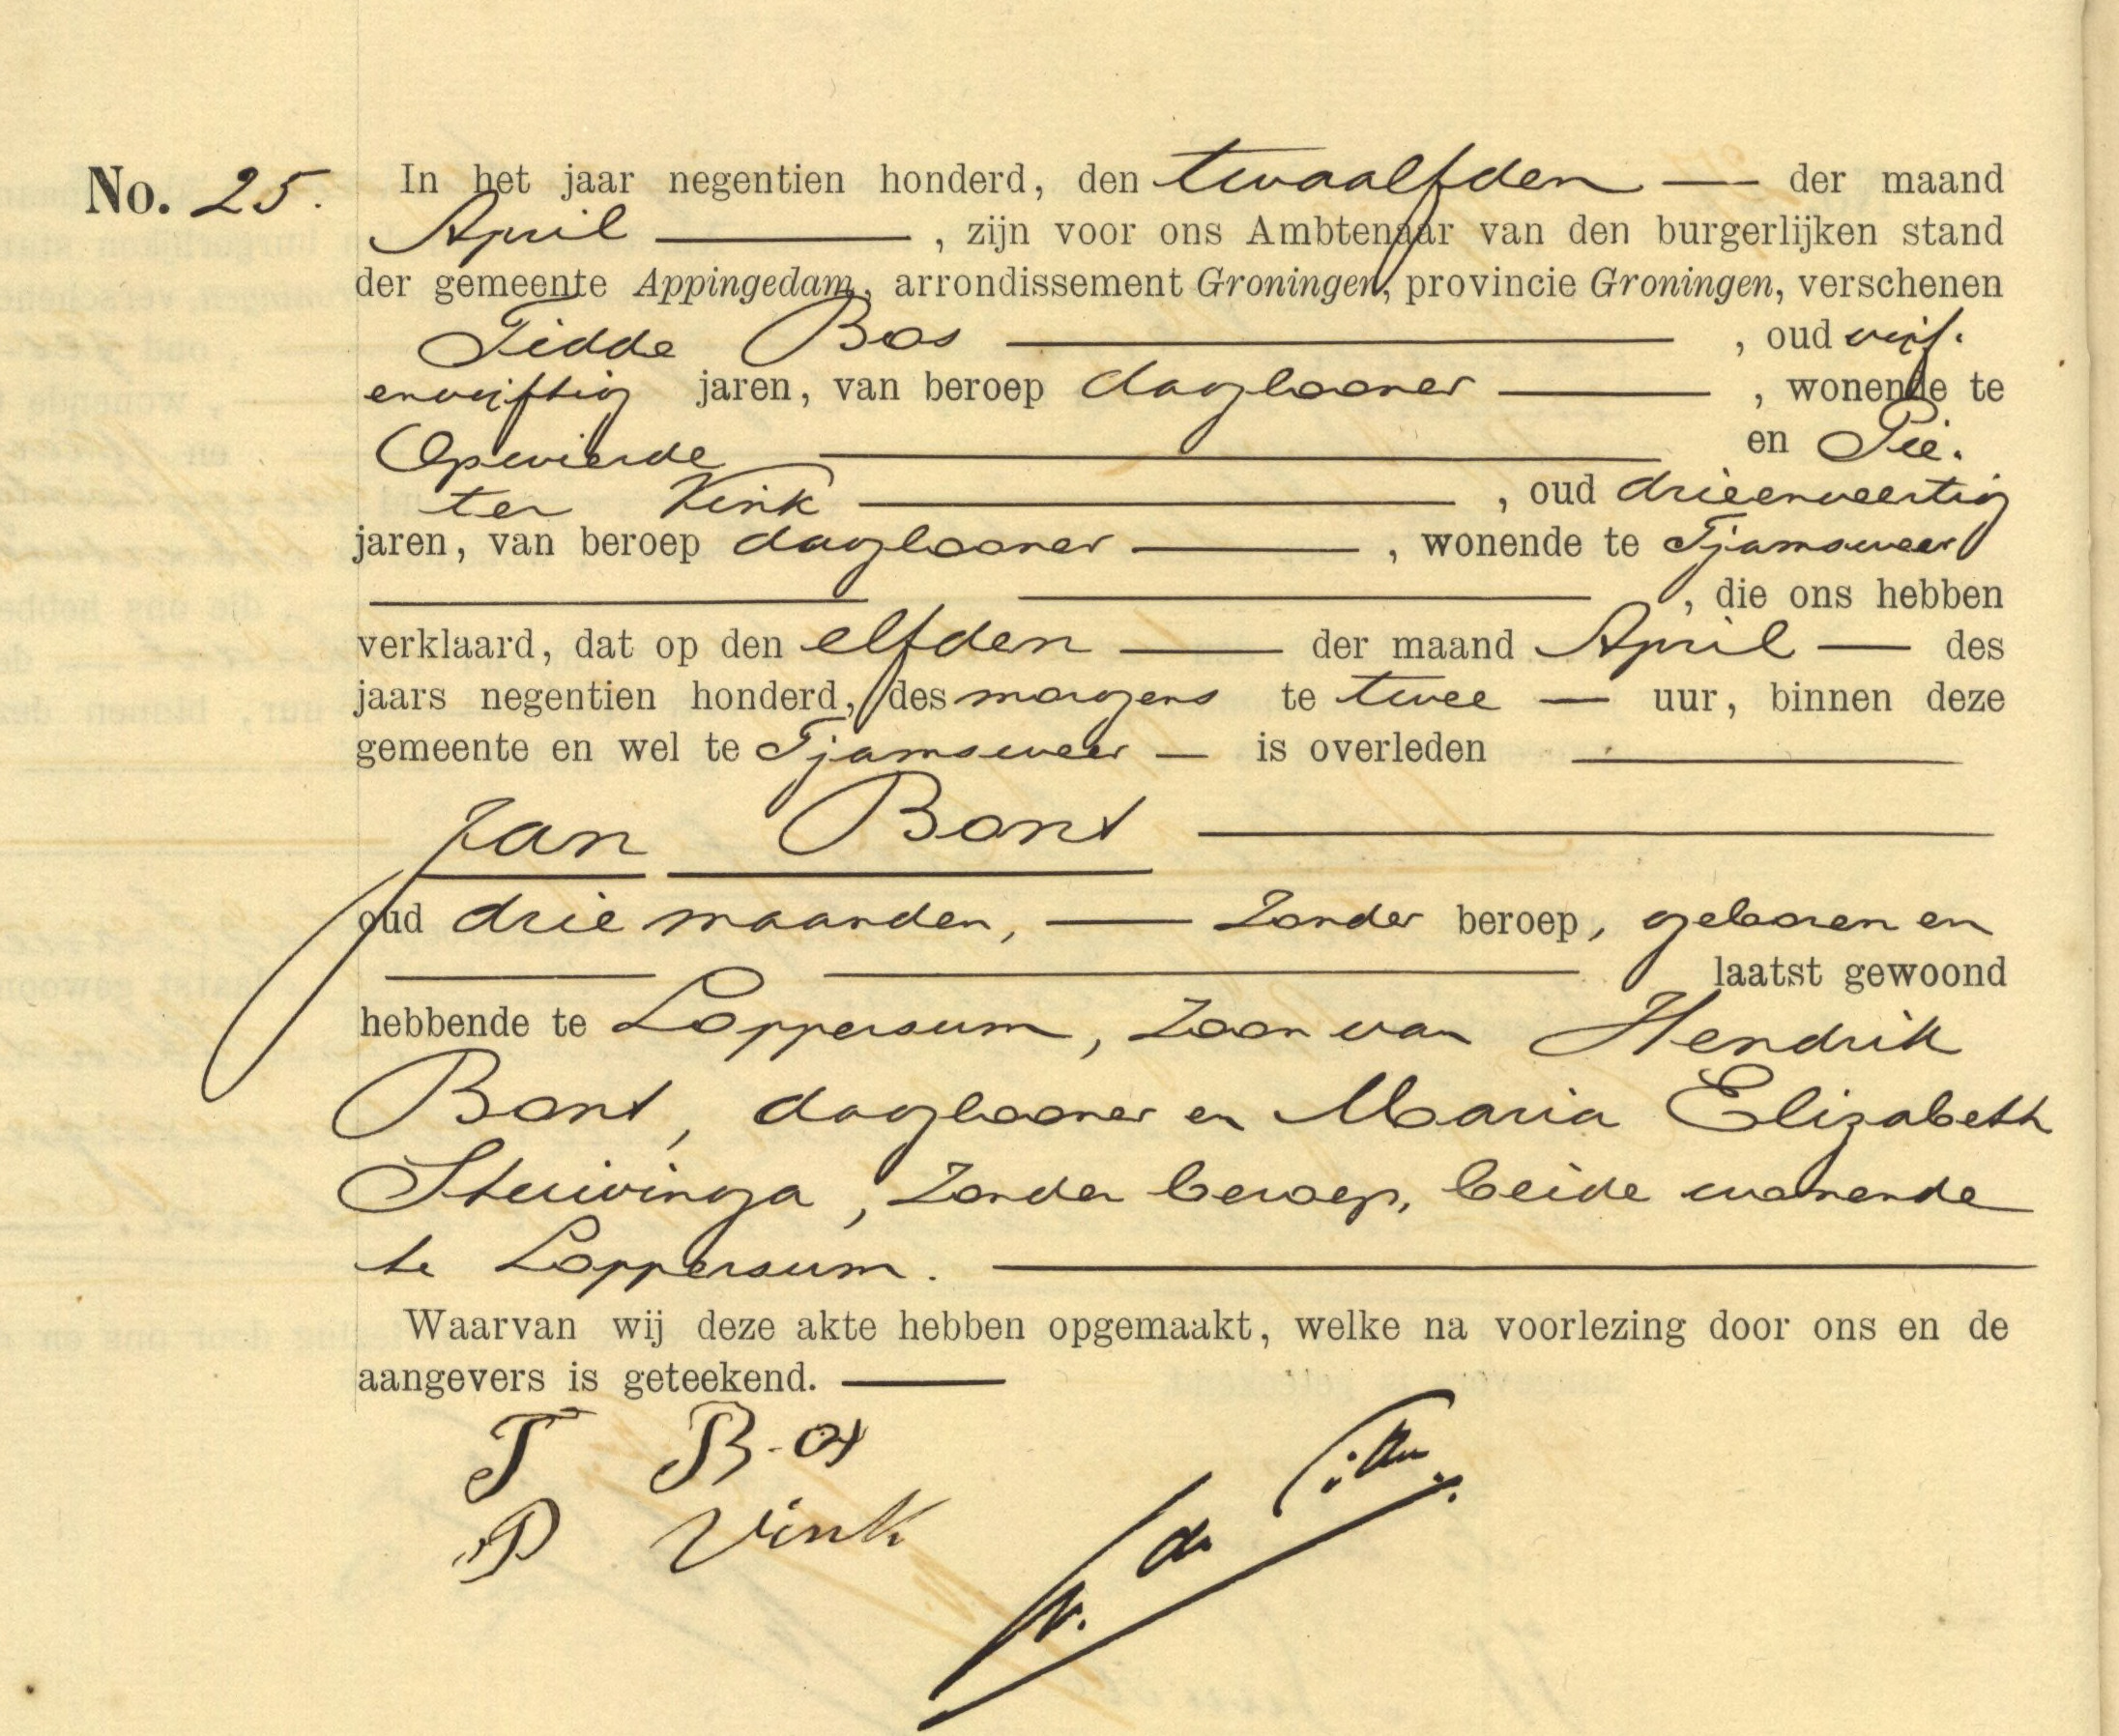 No. 25. In het jaar negentien honderd, den twaalfden der maand
April, zijn voor ons Ambtenaar van den burgerlijken stand
der gemeente Appingedam, arrondissement Groningen, provincie Groningen, verschenen
Tidde Bos, oud vijf-
envijftig jaren, van beroep daglooner, wonende te
Opwierde en Pie-
ter Vink, oud drieenveertig
jaren, van beroep daglooner, wonende te Tjamsweer
, die ons hebben
verklaard, dat op den elfden der maand April des
jaars negentien honderd, des morgens te twee uur, binnen deze
gemeente en wel te Tjamsweer is overleden
Jan Bont
oud drie maanden, zonder beroep, geboren en
laatst gewoond
hebbende te Loppersum, zoon van Hendrik
Bont, daglooner en Maria Elizabeth
Stuivinga, zonder beroep, beide wonende
te Loppersum.
Waarvan wij deze akte hebben opgemaakt, welke na voorlezing door ons en de
aangevers is geteekend.
T Bos
P Vink